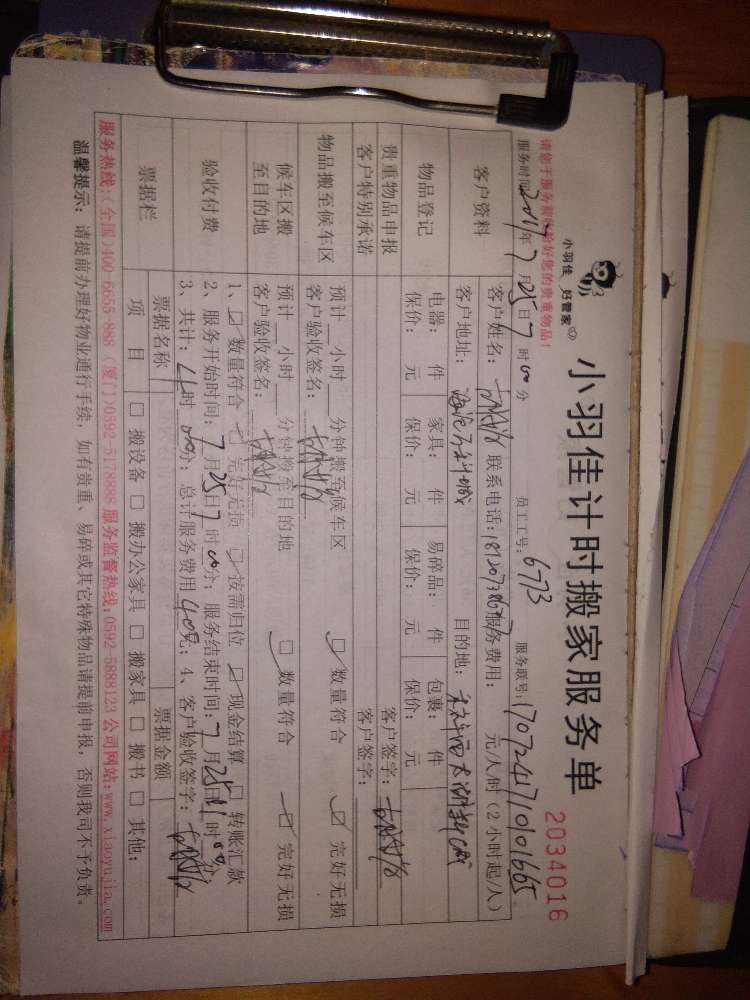 小羽佳计时搬家服务单
小羽佳 好管家
2034016
请您于服务前收拾好您的贵重物品！
服务时间：2017年7月25日7时00分 员工工号：6773 服务联号：170724710101665
客户资料
客户姓名： 联系电话： 服务费用： 元/人/时（2小时起/人）
客户地址： 目的地：
物品登记
电器： 件 家具： 件 易碎品： 件 包裹： 件
保价： 元 保价： 元 保价： 元 保价： 元
贵重物品申报 客户签字：
客户特别承诺 客户签字：
物品搬至候车区
预计 小时 分钟搬至候车区 ☑ 数量符合 ☑ 完好无损
客户验收签名：
候车区搬至目的地
预计 小时 分钟搬至目的地 ☑ 数量符合 ☑ 完好无损
客户验收签名：
验收付费
1、☑ 数量符合 ☑ 完好无损 ☑ 按需归位 ☑ 现金结算 □ 转账汇款
2、服务开始时间：7月25日7时00分；服务结束时间：7月25日11时00分
3、共计：4时00分；总计服务费用400元；4、客户验收签字：
票据栏
票据名称 票据金额
项目 □ 搬设备 □ 搬办公家具 □ 搬家具 □ 搬书 □ 其他：
服务热线：(全国)400-6655-888 (厦门)0592-5178888 服务监督热线：0592-5888123 公司网站：www.xiaoyujia.com
温馨提示：请提前办理好物业通行手续，如有贵重、易碎或其它特殊物品请提前申报，否则我司不予负责。